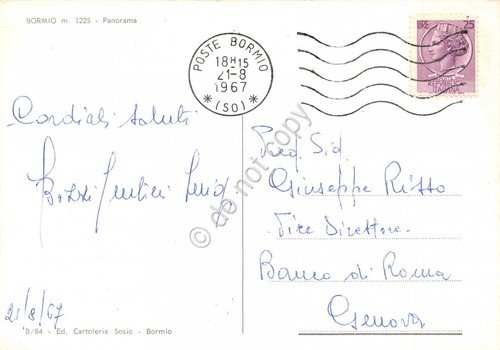 BORMIO m. 1225 - Panorama
POSTE BORMIO
18H15
21-8
1967
* (SO) *
LIRE 25
REPUBBLICA
ITALIANA
Cordiali saluti
21/8/67
Giuseppe Risso
Vice Direttore
Banco di Roma
Genova
B/84 - Ed. Cartoleria Sosio - Bormio
do not copy